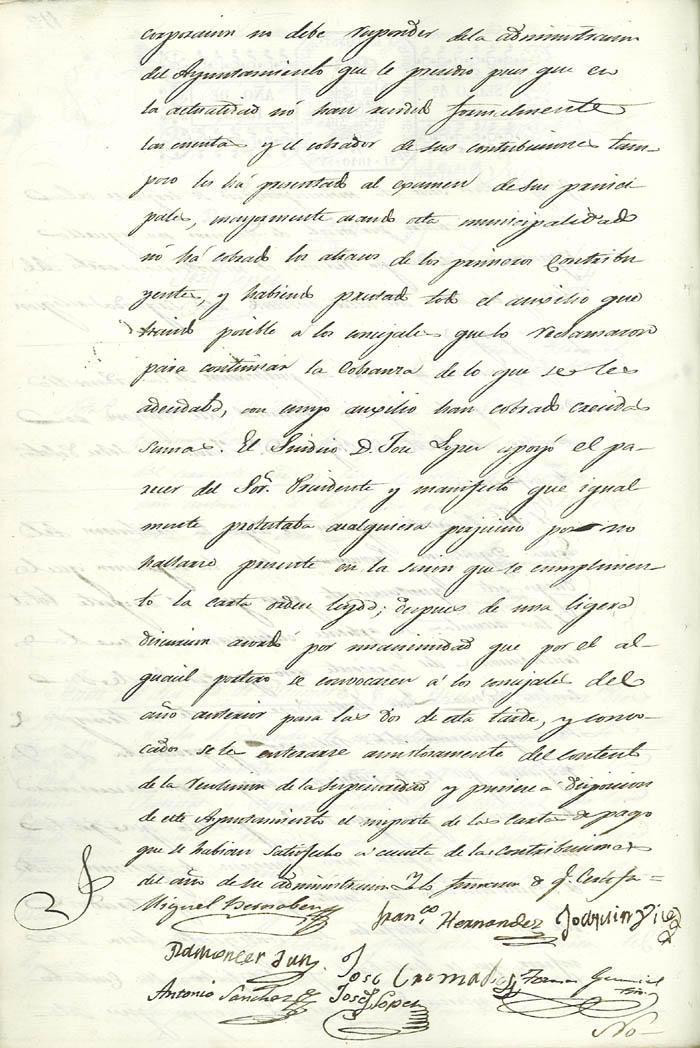 corporacion no debe responder dela administracion
del Ayuntamiento que le precedio pues que en
la actualidad nó han rendido formalmente
las cuentas y el cobrador de sus contribuciones tam-
poco los há presentado al examen de sus princi
pales, mayormente cuando esta municipalidad
nó há cobrado los atrasos de los primeros Contribu
yentes, y habiendo prestado todo el auxilio que
posible a los concejales que lo reclamaron
para continuar la Cobranza de lo que se les
adeudaba, con cuyo auxilio han cobrado crecidas
sumas. El Sindico D. Jose Lopez apoyó el pa-
recer del Sor. Presidente y manifestó que igual
mente protestaba cualquiera perjuicio por no
hallarse presente en la sesion que se cumplimen
tó la carta orden leyda; despues de una ligera
discusion acordó por unanimidad que por el al-
guacil portero se convocasen á los concejales del
año anterior para las dos de esta tarde, y convo-
cados se le enterarse amistosamente del Contenido
de la resolucion de la Superioridad y pusiese á disposicion
de este Ayuntamiento el importe de las Cartas de pago
que se habian satisfecho á cuenta de las Contribuciones
del año de su administracion Y lo firmaron
Miguel Bernabeu Franco. Hernandez Joaquin
Jose Cremades
Antonio Sanchez Josef Lopez
No-